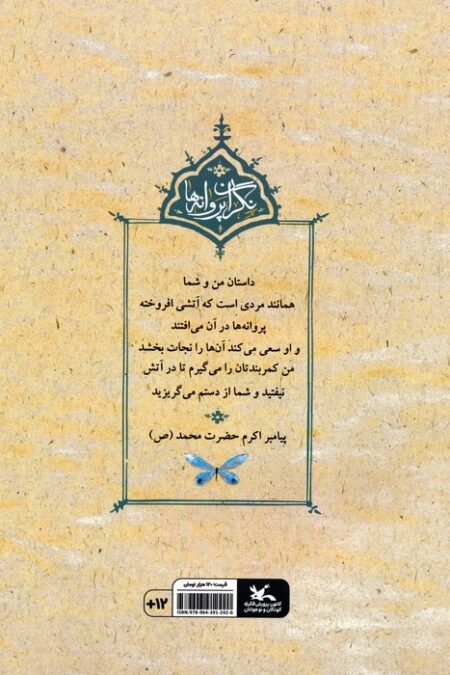 نگران پروانه‌ها
داستان من و شما
همانند مردی است که آتشی افروخته
پروانه‌ها در آن می‌افتند
و او سعی می‌کند آن‌ها را نجات بخشد
من کمربندتان را می‌گیرم تا در آتش
نیفتید و شما از دستم می‌گریزید
پیامبر اکرم حضرت محمد (ص)
قیمت: ۱۲۰ هزار تومان
ISBN: 978-964-391-242-0
+۱۲
کانون پرورش فکری
کودکان و نوجوانان